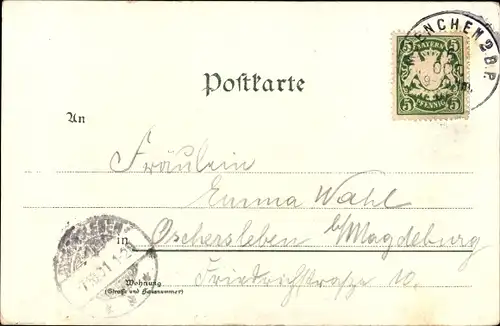 MUENCHEN 2 B.P.
5 BAYERN 5
5 PFENNIG 5
Postkarte
An
Fräulein
Emma Wahl
in Oschersleben b/Magdeburg
Wohnung
(Straße und Hausnummer)
Friedrichstraße 10.